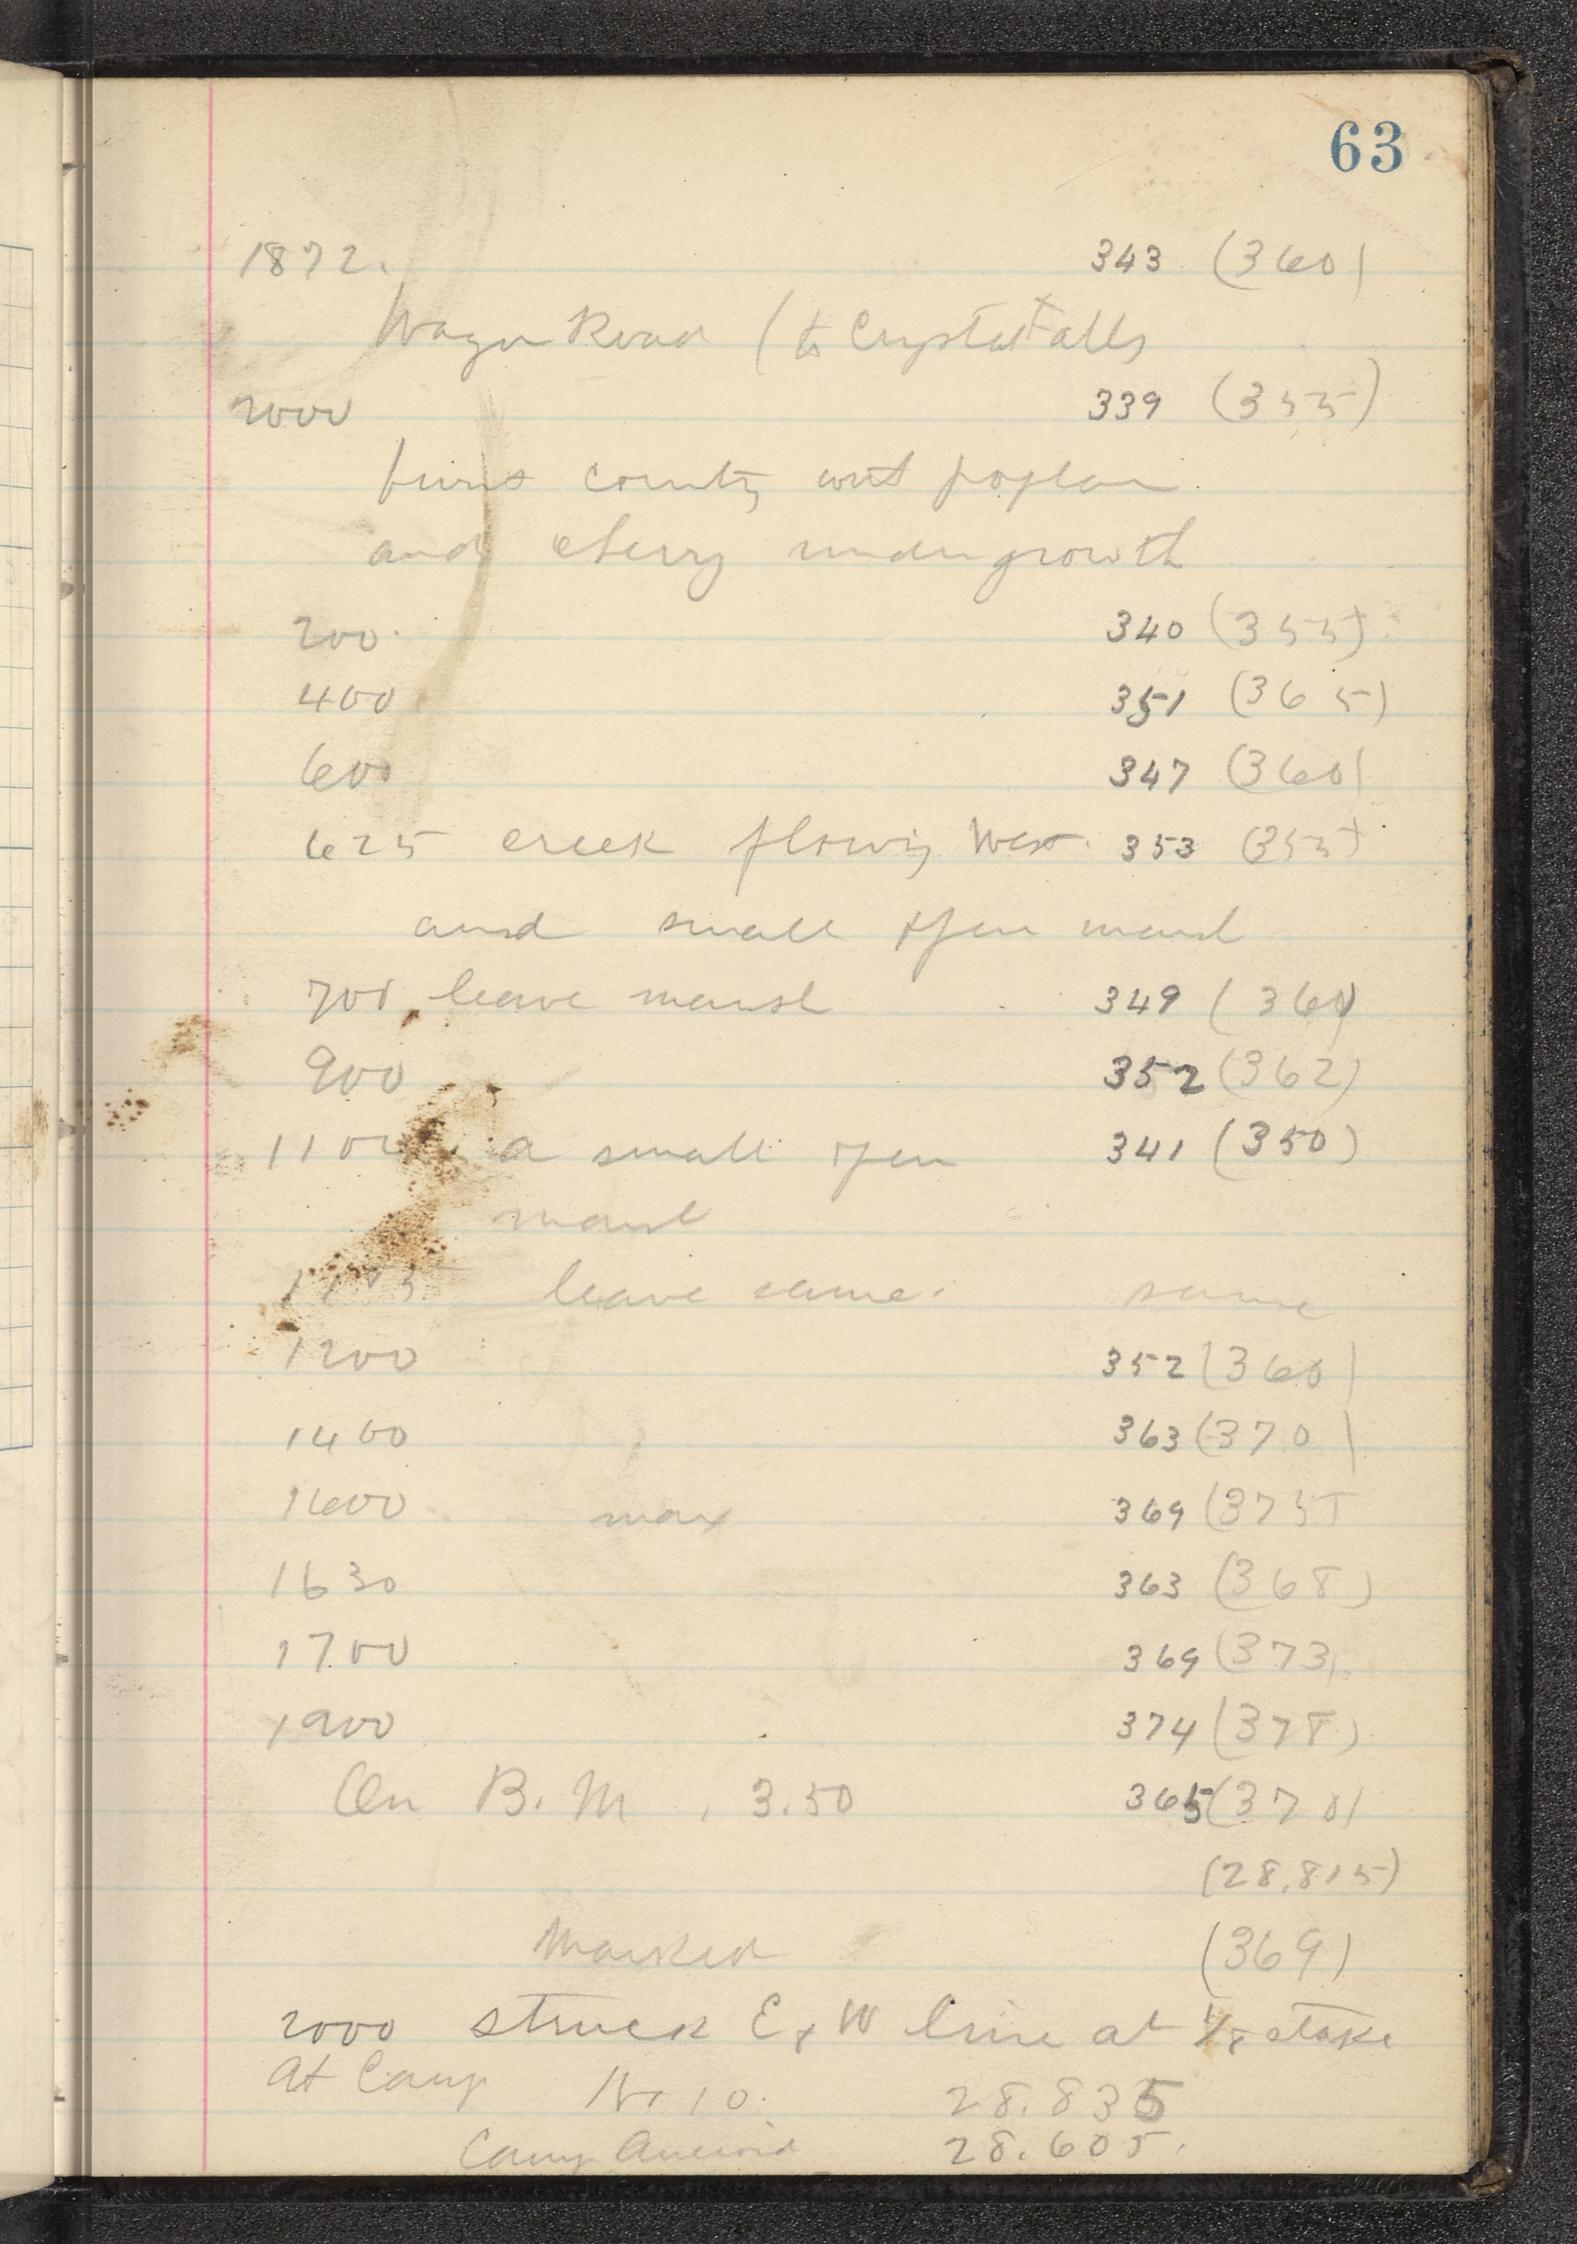 63
1872. 343 (360)
Wagon Road (to Crystal Falls
2000 339 (355)
burnt country with poplar
and cherry undergrowth
200. 340 (355)
400 351 (365)
600 347 (360)
625 creek flowing West 353 (355)
and small open marsh
700 leave marsh 349 (360)
900 352 (362)
1100 a small open 341 (350)
marsh
leave same. same
1200 352 (360)
1400 363 (370)
1600 max 369 (375
1630 363 (368)
1700 369 (373)
1900 374 (378)
On B. M. 3.50 365 (370)
(28.815)
Marked (369)
2000 struck E & W line at 1/8 stake
At Camp No 10. 28.835
Camp Aneroid 28.605.